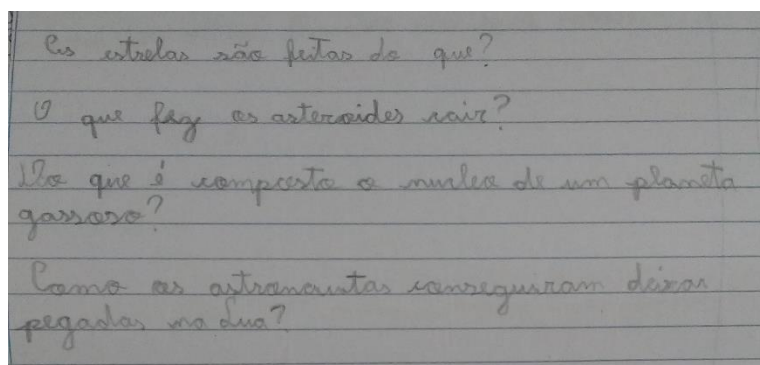 As estrelas são feitas do que?
O que faz os asteroides cair?
Do que é composto o nucleo de um planeta
gassoso?
Como os astronautas conseguiram deixar
pegadas na Lua?